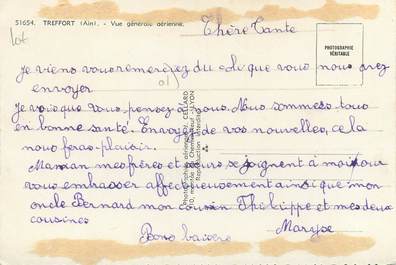 51654. TREFFORT (Ain). - Vue générale aérienne.
Chère Tante
PHOTOGRAPHIE
VÉRITABLE
je viens vous remerciez du colis que vous nous avez
envoyer
je vois que vous pensez à nous. Nous sommes tous
en bonne santé. Envoyez de vos nouvelles, cela
nous feras plaisir.
Maman mes frères et sœurs se joignent à moi pour
vous embrasser affectueusement ainsi que mon
oncle Bernard mon cousin Philippe et mes deux
cousines
Bons baisers
Maryse
CELLARD
LYON
Reproduction interdite